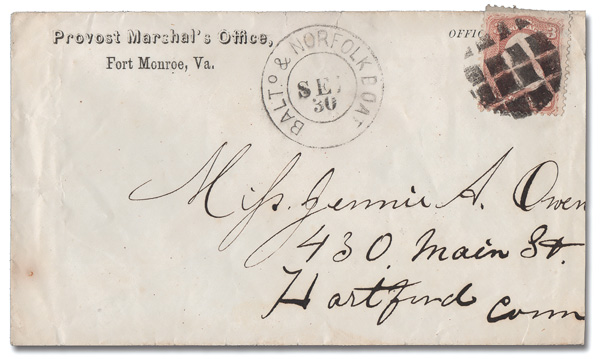 Provost Marshal's Office,
Fort Monroe, Va.
OFFIC
BALTO & NORFOLK BOAT
SEP
30
3
Miss. Jennie A. Owen
430. Main St.
Hartford Conn